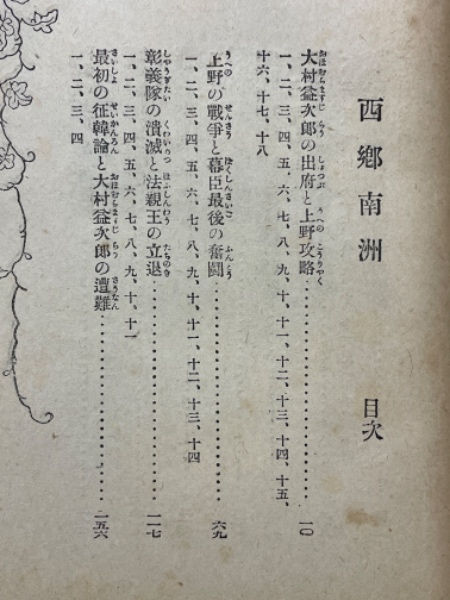 西鄕南洲 目次
大村益次郎の出府と上野攻略……一〇
一、二、三、四、五、六、七、八、九、十、十一、十二、十三、十四、十五、
十六、十七、十八
上野の戰爭と幕臣最後の奮鬪……六九
一、二、三、四、五、六、七、八、九、十、十一、十二、十三、十四
彰義隊の潰滅と法親王の立退……一一七
一、二、三、四、五、六、七、八、九、十、十一
最初の征韓論と大村益次郎の遭難……一五六
一、二、三、四